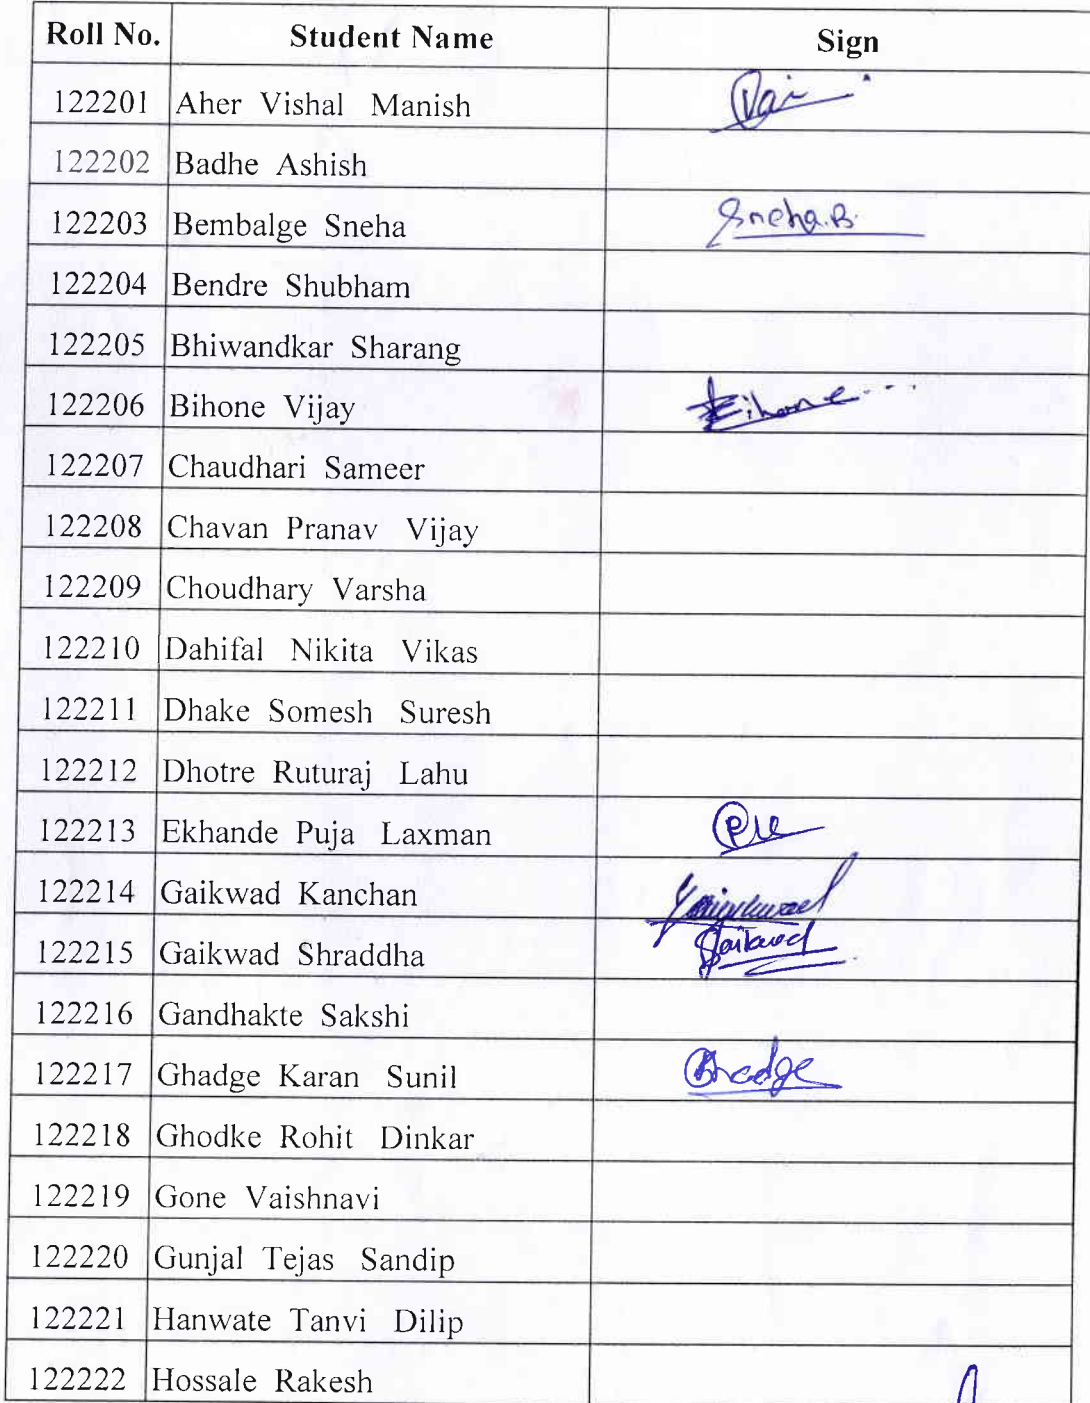 Roll No. Student Name Sign
122201 Aher Vishal Manish
122202 Badhe Ashish
122203 Bembalge Sneha Sneha.B.
122204 Bendre Shubham
122205 Bhiwandkar Sharang
122206 Bihone Vijay Bihone...
122207 Chaudhari Sameer
122208 Chavan Pranav Vijay
122209 Choudhary Varsha
122210 Dahifal Nikita Vikas
122211 Dhake Somesh Suresh
122212 Dhotre Ruturaj Lahu
122213 Ekhande Puja Laxman
122214 Gaikwad Kanchan
122215 Gaikwad Shraddha Gaikwad
122216 Gandhakte Sakshi
122217 Ghadge Karan Sunil Ghadge
122218 Ghodke Rohit Dinkar
122219 Gone Vaishnavi
122220 Gunjal Tejas Sandip
122221 Hanwate Tanvi Dilip
122222 Hossale Rakesh